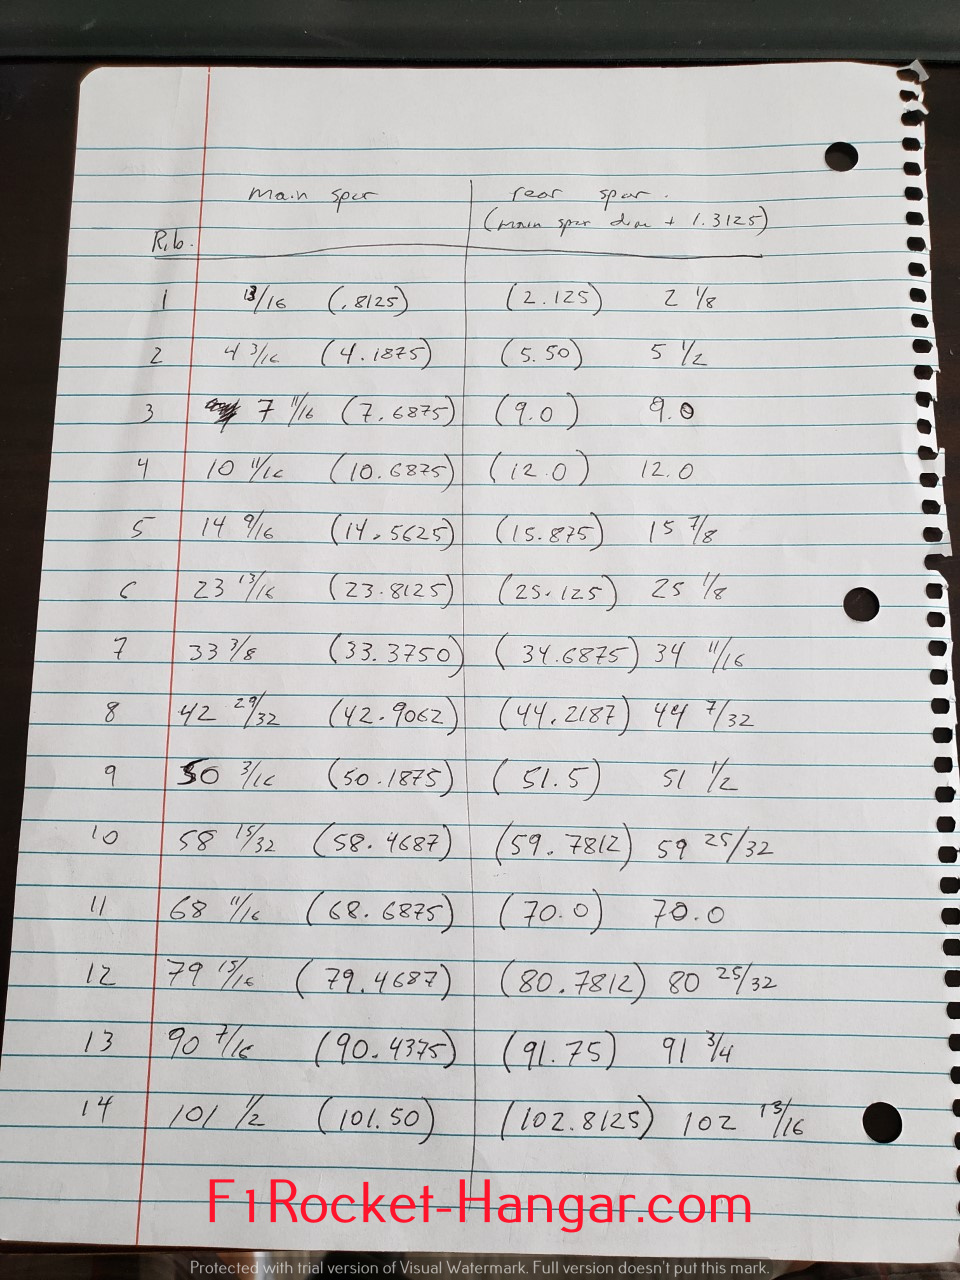 main spar rear spar.
(main spar dim + 1.3125)
Rib.
1 13/16 (.8125) (2.125) 2 1/8
2 4 3/16 (4.1875) (5.50) 5 1/2
3 7 11/16 (7.6875) (9.0) 9.0
4 10 11/16 (10.6875) (12.0) 12.0
5 14 9/16 (14.5625) (15.875) 15 7/8
6 23 13/16 (23.8125) (25.125) 25 1/8
7 33 3/8 (33.3750) (34.6875) 34 11/16
8 42 29/32 (42.9062) (44.2187) 44 7/32
9 50 3/16 (50.1875) (51.5) 51 1/2
10 58 15/32 (58.4687) (59.7812) 59 25/32
11 68 11/16 (68.6875) (70.0) 70.0
12 79 15/16 (79.4687) (80.7812) 80 25/32
13 90 7/16 (90.4375) (91.75) 91 3/4
14 101 1/2 (101.50) (102.8125) 102 13/16
F1Rocket-Hangar.com
Protected with trial version of Visual Watermark. Full version doesn't put this mark.